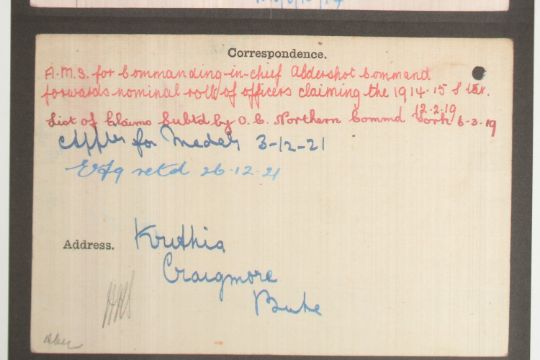 Correspondence.
A.M.S. for Commanding-in-chief Aldershot Command
forwards nominal roll of officers claiming the 1914-15 Star.
12-2-19
List of Claims Subtd by O.C. Northern Commd Cork 6-3-19
Applies for Medals 3-12-21
retd 26-12-21
Address. Kruthia
Craigmore
Bute